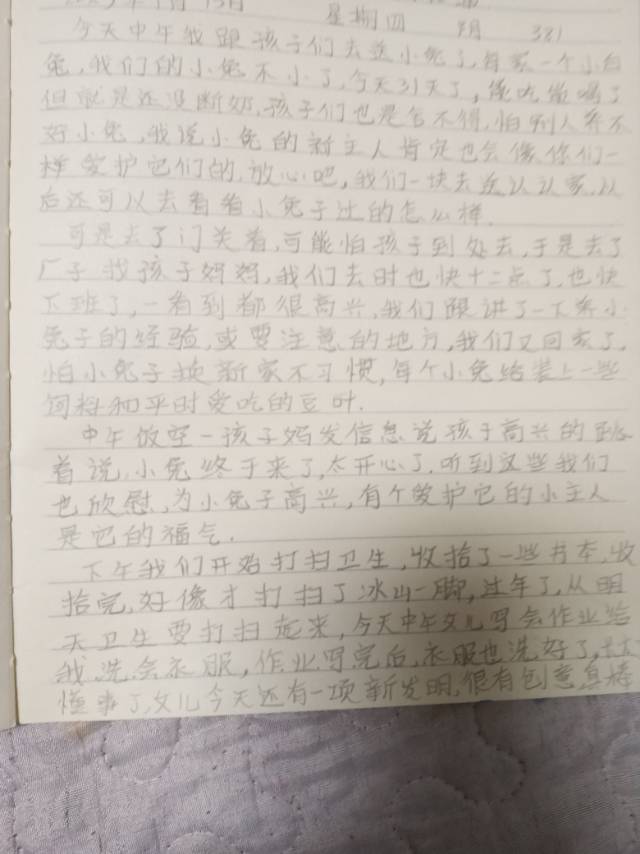 星期四 381
今天中午我跟孩子们去送小兔了,每家一个小白
兔,我们的小兔不小了,今天31天了,能吃能喝了
但就是还没断奶,孩子们也是舍不得,怕别人养不
好小兔,我说小兔的新主人肯定也会像你们一
样爱护它们的,放心吧,我们一块去送认认家,以
后还可以去看看小兔子过的怎么样.
可是去了门关着,可能怕孩子到处去,于是去了
厂子找孩子妈妈,我们去时也快十二点了,也快
下班了,一看到都很高兴,我们跟讲了一下养小
兔子的经验,或要注意的地方,我们又回家了,
怕小兔子换新家不习惯,每个小兔给装上一些
饲料和平时爱吃的豆叶.
中午饭空一孩子妈发信息说孩子高兴的跳
着说,小兔终于来了,太开心了,听到这些我们
也欣慰,为小兔子高兴,有个爱护它的小主人
是它的福气.
下午我们开始打扫卫生,收拾了一些书本,收
拾完,好像才打扫了冰山一脚,过年了,从明
天卫生要打扫起来,今天中午女儿写会作业给
我洗会衣服,作业写完后,衣服也洗好了,
懂事了,女儿今天还有一项新发明,很有创意,